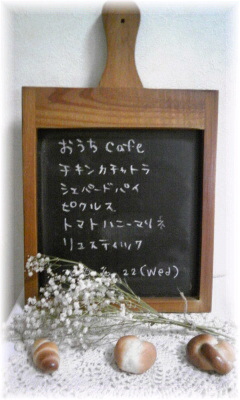 おうち Cafe
チキンカチャトラ
シェパードパイ
ピクルス
トマトハニーマリネ
リュスティック
22 (Wed)